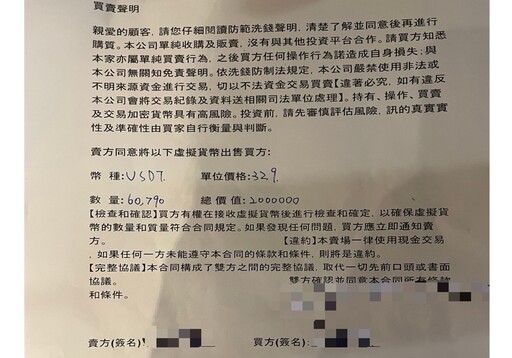 買賣聲明
親愛的顧客，請您仔細閱讀防範洗錢聲明，清楚了解並同意後再進行
購買。本公司單純收購及販賣，沒有與其他投資平台合作。請買方知悉
本家亦屬單純買賣行為，之後買方任何操作行為諾造成自身損失；與
本公司無關知免責聲明。依洗錢防制法規定，本公司嚴禁使用非法或
不明來源資金進行交易，切以不法資金交易買賣【違著必究，如有違反
本公司會將交易紀錄及資料送相關司法單位處理】。持有、操作、買賣
及交易加密貨幣具有高風險。投資前，請先審慎評估風險，訊的真實實
性及準確性由買家自行衡量與判斷。
賣方同意將以下虛擬貨幣出售買方：
幣種：USDT. 單位價格：32.9.
數量：60,790 總價值：2000000
【檢查和確認】買方有權在接收虛擬貨幣後進行檢查和確定，以確保虛擬貨
幣的數量和質量符合合同規定。如果發現任何問題，買方應立即通知賣
方。 【違約】本賣場一律使用現金交易
，如果任何一方未能遵守本合同的條款和條件，則將是違約。
【完整協議】本合同構成了雙方之間的完整協議，取代一切先前口頭或書面
協議。 雙方確認並同意本合同所有條款
和條件。
賣方(簽名) 買方(簽名)：